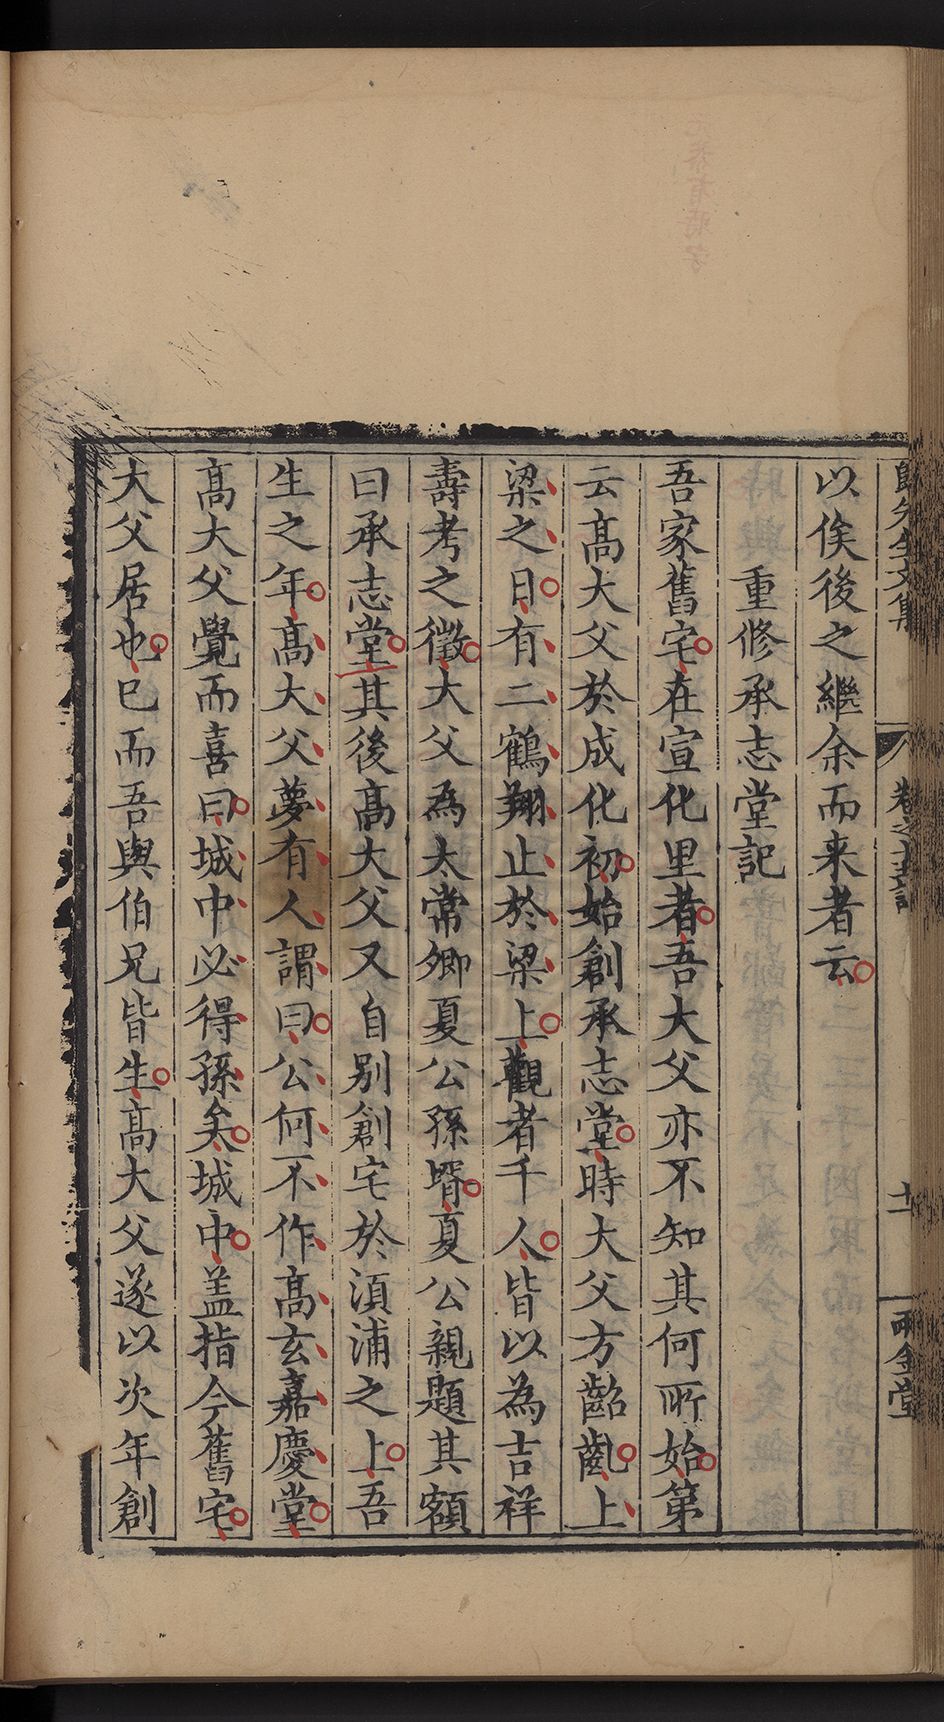 歸先生文集 卷之十 記 十一 兩金堂
以俟後之繼余而来者云
重修承志堂記
吾家舊宅在宣化里者吾大父亦不知其何所始第
云髙大父於成化初始創承志堂時大父方齠齓上
梁之日有二鶴翔止於梁上觀者千人皆以為吉祥
壽考之徵大父爲太常卿夏公孫壻夏公親題其額
曰承志堂其後髙大父又自别創宅於湏浦之上吾
生之年髙大父夢有人謂曰公何不作髙玄嘉慶堂
髙大父覺而喜曰城中必得孫矣城中盖指今舊宅
大父居也已而吾與伯兄皆生髙大父遂以次年創